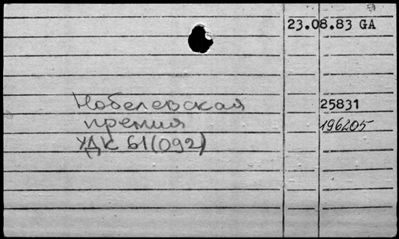 23.08.83 GA
Нобелевская
25831
премия
196205
УДК 61(092)